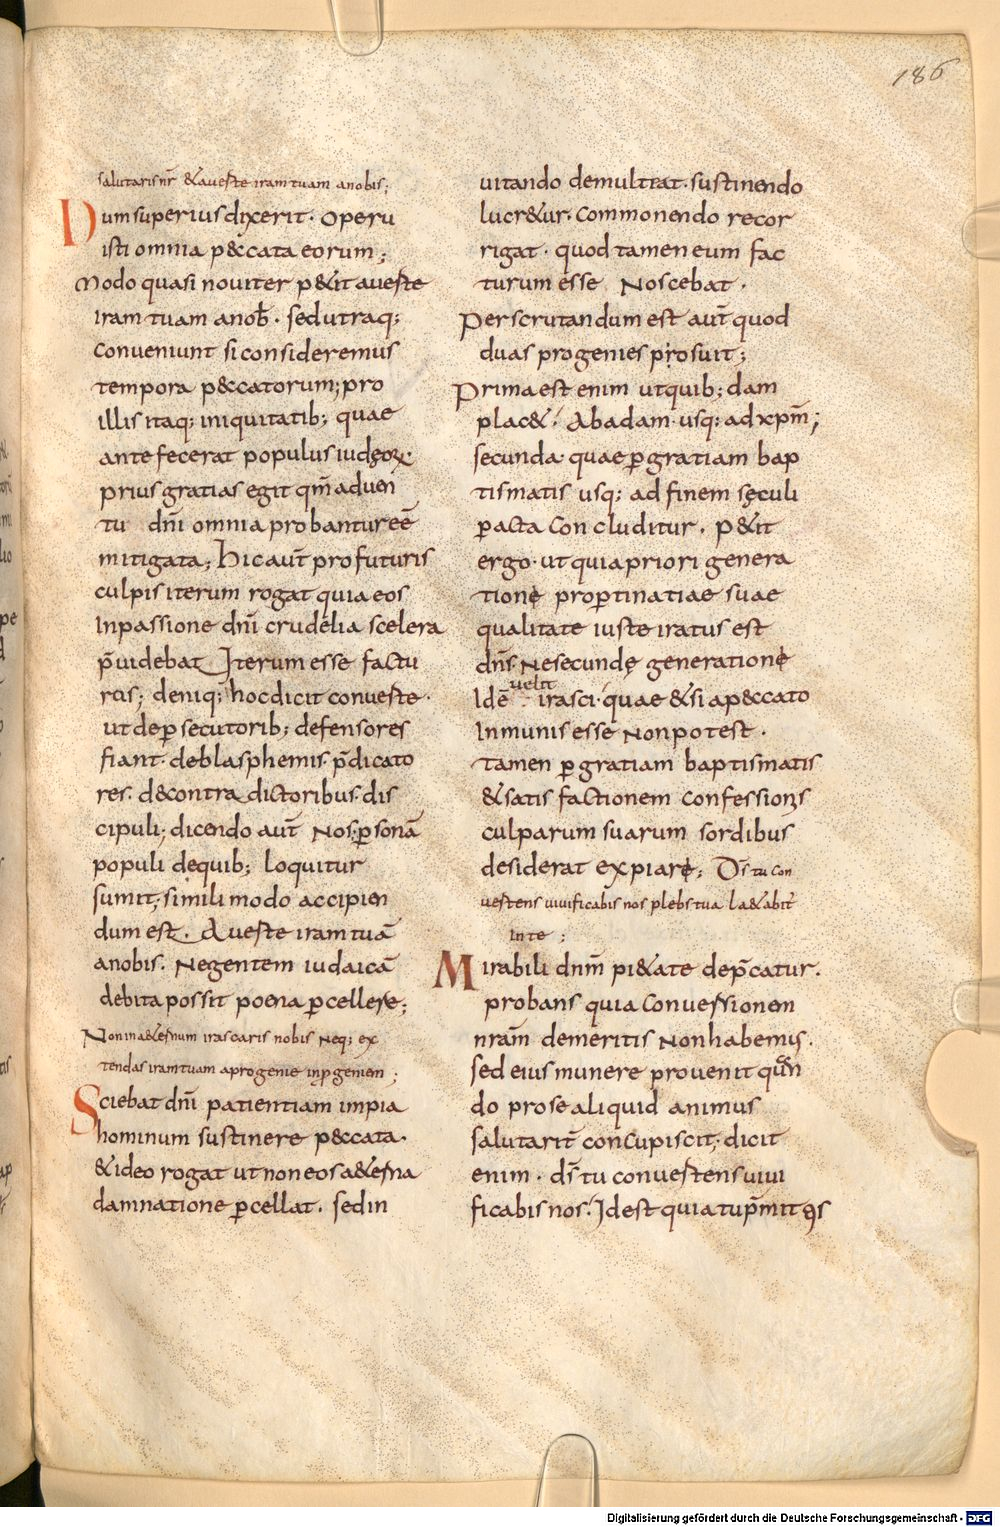 186
salutaris nr̄ & aueste iram tuam anobis;
Dum superius dixerit· operu
isti omnia p&cata eorum;
Modo quasi nouiter p&it aueste
iram tuam anob̄· sed utraq;
conueniunt si consideremus
tempora p&catorum; pro
illis itaq; iniquitatib; quae
ante fecerat populus iudęoꝝ·
prius gratias egit qm̄ aduen
tu dn̄i omnia probantur eē
mitigata; hic aut̄ pro futuris
culpis iterum rogat quia eos
in passione dn̄i crudelia scelera
p̄uidebat iterum esse factu
ros; deniq; hoc dicit conueste·
ut de ꝑsecutorib; defensores
fiant· de blasphemis p̄dicato
res· d&contradictoribus dis
cipuli; dicendo aut̄ nos· ꝑsonā
populi de quib; loquitur
sumit; simili modo accipien
dum est· Aueste iram tuā
anobis· Ne gentem iudaicā
debita possit poena ꝑcellere;
Non in a&ernum irascaris nobis neq; ex
tendas iram tuam aprogenie inꝓgeniem;
Sciebat dn̄i patientiam impia
hominum sustinere p&cata·
& ideo rogat ut non eos a&erna
damnatione ꝑcellat· sed in
uitando demulceat· sustinendo
lucr&ur· commonendo recor
rigat· quod tamen eum fac
turum esse noscebat·
Perscrutandum est aut̄ quod
duas progenies posuit;
Prima est enim ut quib; dam
plac&· Abadam· usq; ad xpm̄;
secunda· quae ꝑ gratiam bap
tismatis usq; ad finem sęculi
ꝑacta concluditur· p&it
ergo· ut quia priori genera
tione pro ꝑtinatiae suae
qualitate iuste iratus est
dn̄s· Ne secundę generatione
uelit
idē irasci· quae & si apeccato
inmunis esse non potest·
tamen ꝑ gratiam baptismatis
& satisfactionem confessionis
culparum suarum sordibus
desiderat expiare; Ds̄ tu con
uestens uiuificabis nos plebs tua la&abit̄
in te;
Mirabili dn̄m pi&ate dep̄catur·
probans quia conuersionem
nr̄am de meritis non habemus·
sed eius munere prouenit quan
do pro se aliquid animus
salutarit̄ concupiscit; dicit
enim· ds̄ tu conuestens uiui
ficabis nos· Id est quia tu p̄mittis
Digitalisierung gefördert durch die Deutsche Forschungsgemeinschaft - DFG